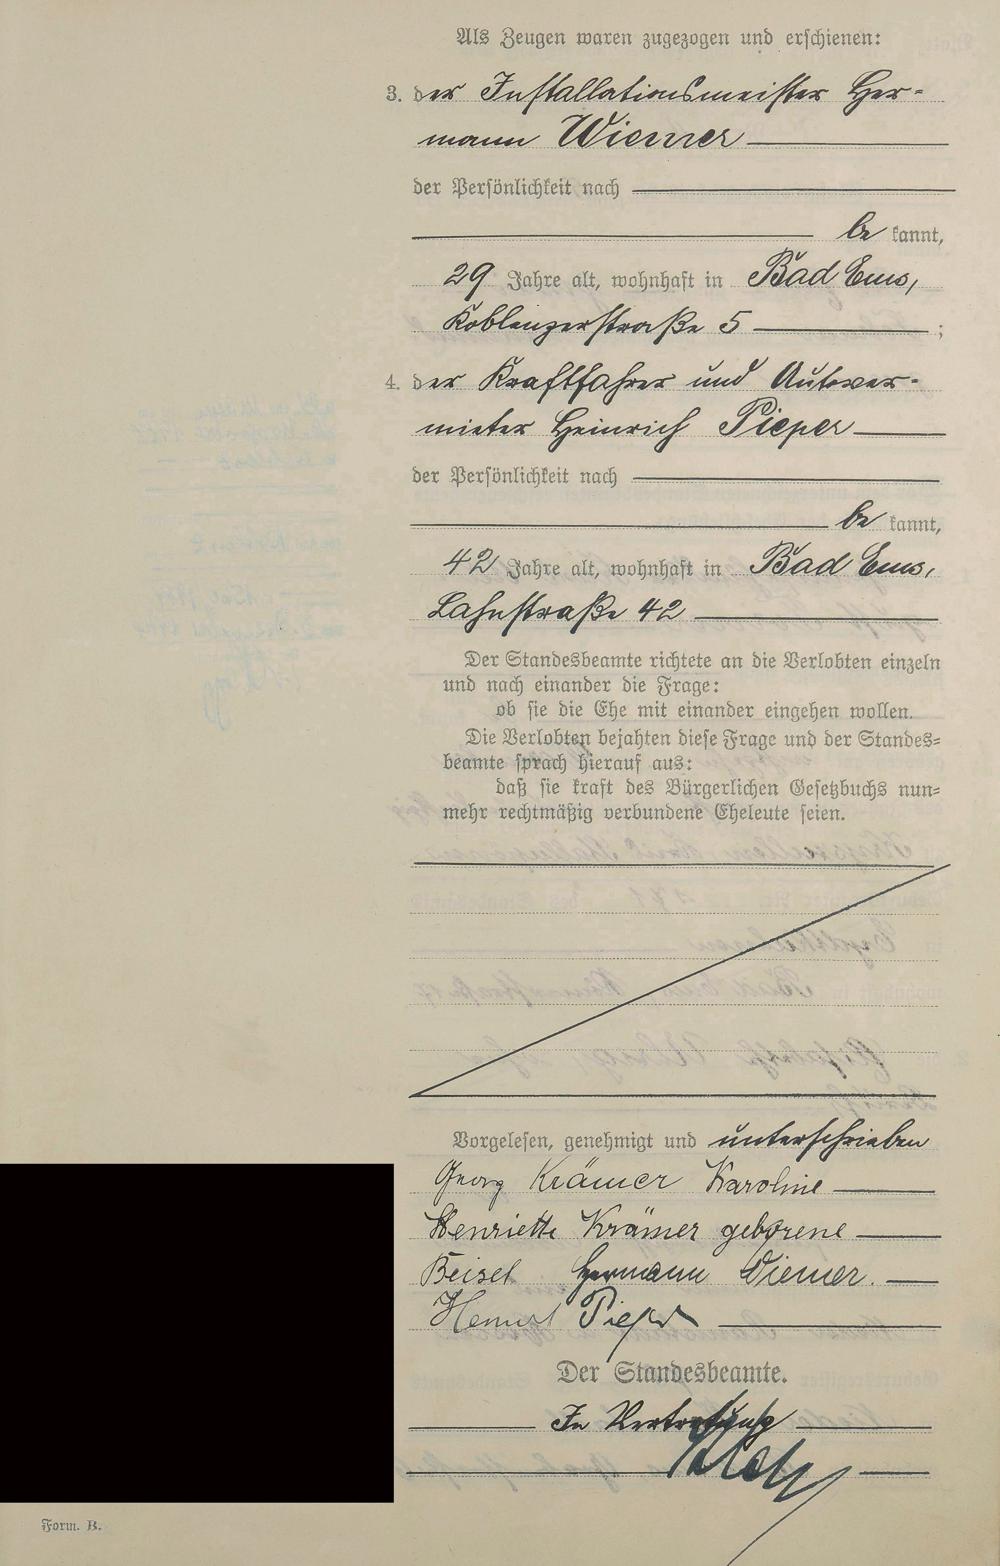 Als Zeugen waren zugezogen und erschienen:
3. der Installationsmeister Her-
mann Wiemer
der Persönlichkeit nach
be kannt,
29 Jahre alt, wohnhaft in Bad Ems,
Koblenzerstraße 5 ;
4. der Kraftfahrer und Autover-
mieter Heinrich Pieper
der Persönlichkeit nach
be kannt,
42 Jahre alt, wohnhaft in Bad Ems,
Lahnstraße 42
Der Standesbeamte richtete an die Verlobten einzeln
und nach einander die Frage:
ob sie die Ehe mit einander eingehen wollen.
Die Verlobten bejahten diese Frage und der Standes-
beamte sprach hierauf aus:
daß sie kraft des Bürgerlichen Gesetzbuchs nun-
mehr rechtmäßig verbundene Eheleute seien.
Vorgelesen, genehmigt und unterschrieben
Georg Krämer Karoline
Henriette Krämer geborene
Beisel Hermann Wiemer.
Der Standesbeamte.
In Vertretung
Form. B.